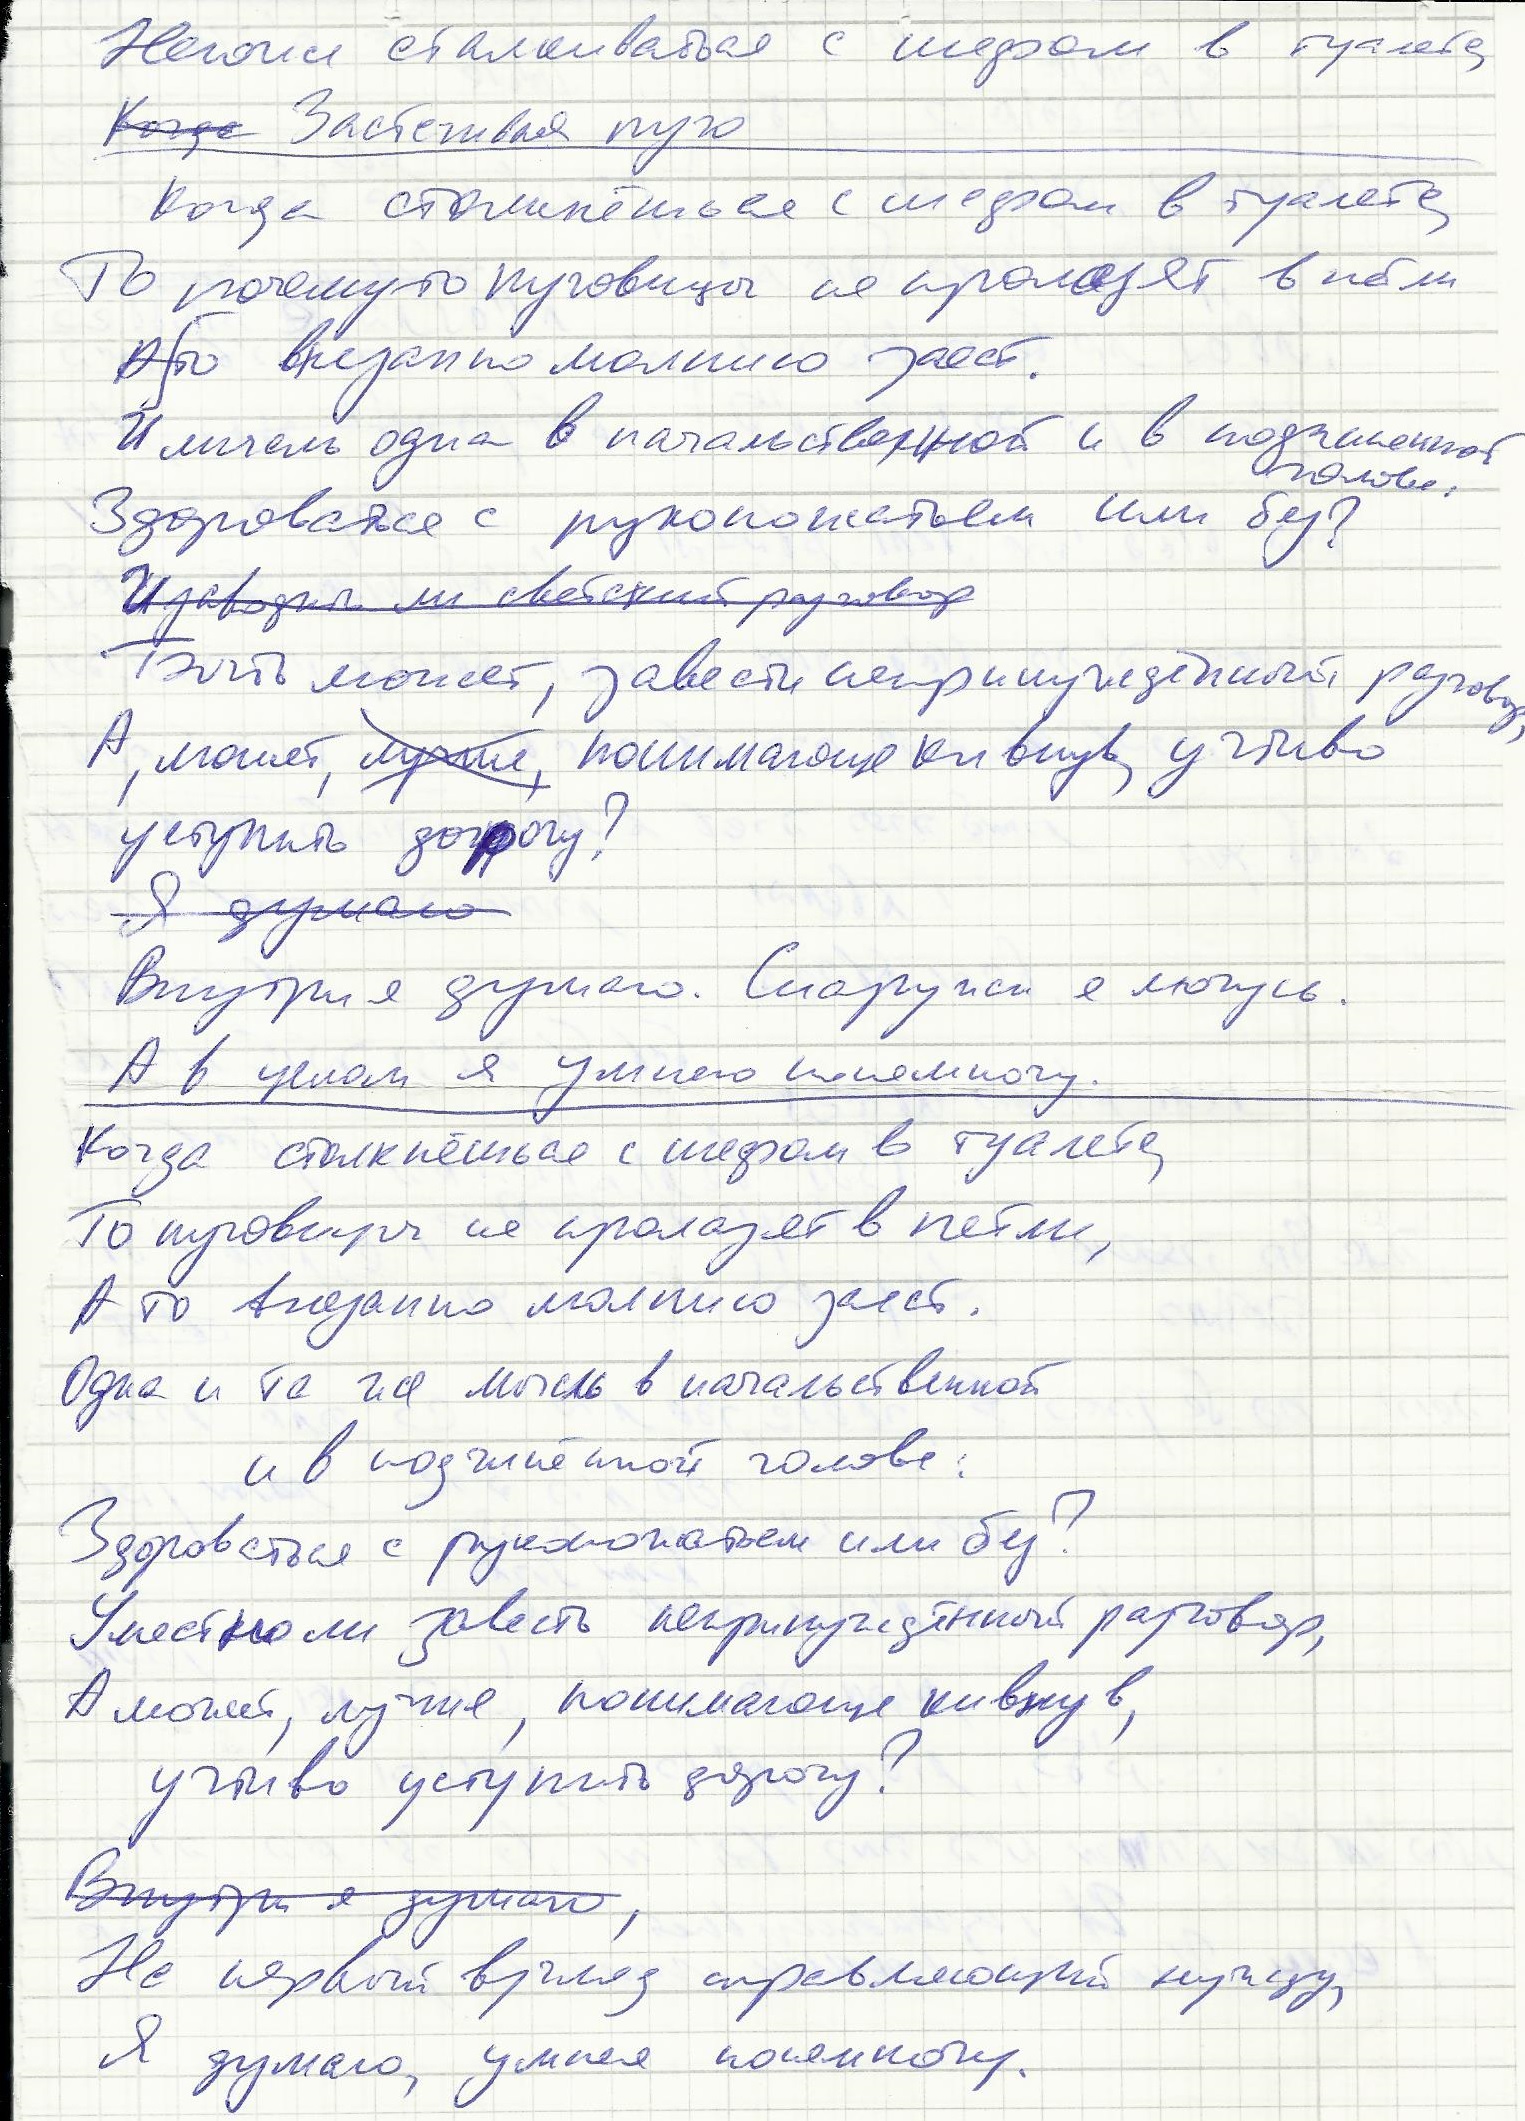 Неохота сталкиваться с шефом в туалете,
Когда Застегивая пуго
Когда столкнёшься с шефом в туалете,
То почему-то пуговицы не пролезят в петли
А то внезапно молнию заест.
И мысль одна в начальственной и в подчиненной
голове:
Здороваться с рукопожатьем или без?
И заводить ли светский разговор
Быть может, завести непринуждённый разговор,
А, может, лучше, понимающе кивнув, учтиво
уступить дорогу?
Я думаю
Внутри я думаю. Снаружи я мочусь.
А в целом я умнею понемногу.
Когда столкнёшься с шефом в туалете,
То пуговицы не пролазят в петли,
А то внезапно молнию заест.
Одна и та же мысль в начальственной
и в подчинённой голове:
Здороваться с рукопожатьем или без?
Уместно ли завесть непринуждённый разговор,
А может, лучше, понимающе кивнув,
учтиво уступить дорогу?
Внутри я думаю,
На первый взгляд справляющий нужду,
Я думаю, умнея понемногу.